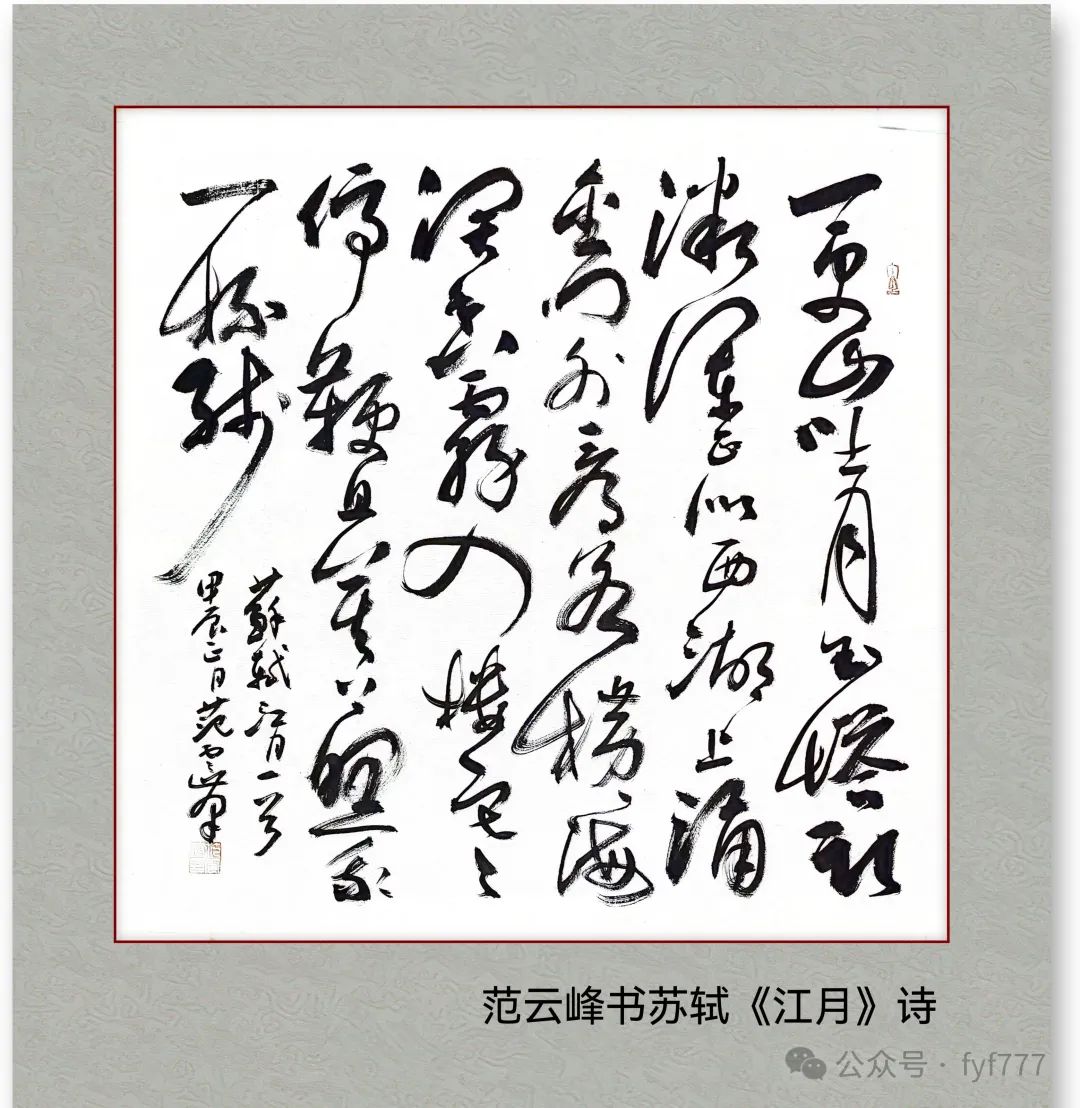 一更山吐月玉塔卧
微澜正似西湖上涌
金门外看横海
阔香雾入楼寒
停鞭且莫下照我
一杯残
蘇軾江月一首
甲辰正月范云峰
范云峰书苏轼《江月》诗
公众号 · fyf777